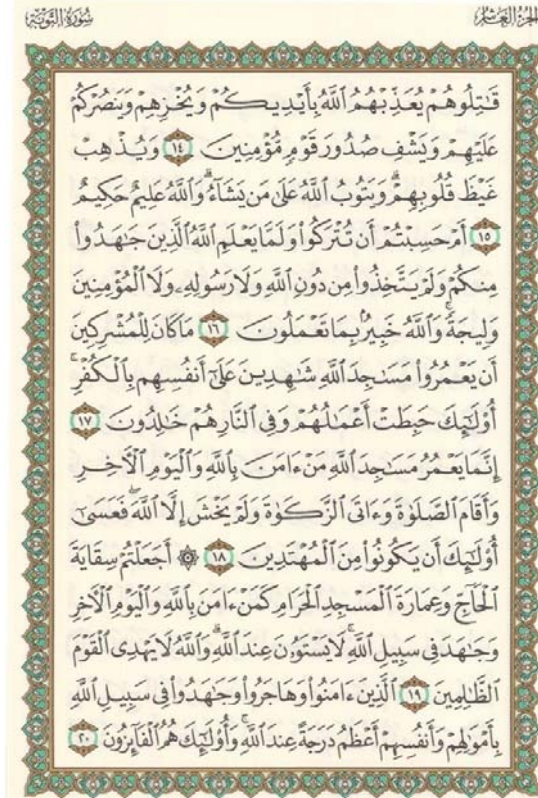 الجزء العاشر
سورة التوبة
قَٰتِلُوهُمْ يُعَذِّبْهُمُ ٱللَّهُ بِأَيْدِيكُمْ وَيُخْزِهِمْ وَيَنصُرْكُمْ
عَلَيْهِمْ وَيَشْفِ صُدُورَ قَوْمٍ مُّؤْمِنِينَ ١٤ وَيُذْهِبْ
غَيْظَ قُلُوبِهِمْ ۗ وَيَتُوبُ ٱللَّهُ عَلَىٰ مَن يَشَآءُ ۗ وَٱللَّهُ عَلِيمٌ حَكِيمٌ
١٥ أَمْ حَسِبْتُمْ أَن تُتْرَكُوا۟ وَلَمَّا يَعْلَمِ ٱللَّهُ ٱلَّذِينَ جَٰهَدُوا۟
مِنكُمْ وَلَمْ يَتَّخِذُوا۟ مِن دُونِ ٱللَّهِ وَلَا رَسُولِهِۦ وَلَا ٱلْمُؤْمِنِينَ
وَلِيجَةً ۚ وَٱللَّهُ خَبِيرٌۢ بِمَا تَعْمَلُونَ ١٦ مَا كَانَ لِلْمُشْرِكِينَ
أَن يَعْمُرُوا۟ مَسَٰجِدَ ٱللَّهِ شَٰهِدِينَ عَلَىٰٓ أَنفُسِهِم بِٱلْكُفْرِ ۚ
أُو۟لَٰٓئِكَ حَبِطَتْ أَعْمَٰلُهُمْ وَفِى ٱلنَّارِ هُمْ خَٰلِدُونَ ١٧
إِنَّمَا يَعْمُرُ مَسَٰجِدَ ٱللَّهِ مَنْ ءَامَنَ بِٱللَّهِ وَٱلْيَوْمِ ٱلْءَاخِرِ
وَأَقَامَ ٱلصَّلَوٰةَ وَءَاتَى ٱلزَّكَوٰةَ وَلَمْ يَخْشَ إِلَّا ٱللَّهَ ۖ فَعَسَىٰٓ
أُو۟لَٰٓئِكَ أَن يَكُونُوا۟ مِنَ ٱلْمُهْتَدِينَ ١٨ ۞ أَجَعَلْتُمْ سِقَايَةَ
ٱلْحَآجِّ وَعِمَارَةَ ٱلْمَسْجِدِ ٱلْحَرَامِ كَمَنْ ءَامَنَ بِٱللَّهِ وَٱلْيَوْمِ ٱلْءَاخِرِ
وَجَٰهَدَ فِى سَبِيلِ ٱللَّهِ ۚ لَا يَسْتَوُۥنَ عِندَ ٱللَّهِ ۗ وَٱللَّهُ لَا يَهْدِى ٱلْقَوْمَ
ٱلظَّٰلِمِينَ ١٩ ٱلَّذِينَ ءَامَنُوا۟ وَهَاجَرُوا۟ وَجَٰهَدُوا۟ فِى سَبِيلِ ٱللَّهِ
بِأَمْوَٰلِهِمْ وَأَنفُسِهِمْ أَعْظَمُ دَرَجَةً عِندَ ٱللَّهِ ۚ وَأُو۟لَٰٓئِكَ هُمُ ٱلْفَآئِزُونَ ٢٠